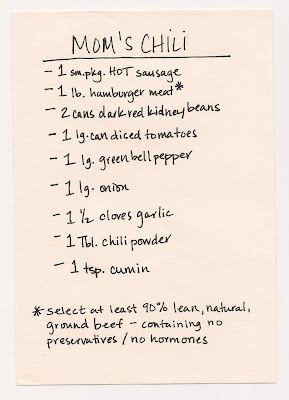 MOM'S CHILI
- 1 sm. pkg. HOT sausage
- 1 lb. hamburger meat*
- 2 cans dark red kidney beans
- 1 lg. can diced tomatoes
- 1 lg. green bell pepper
- 1 lg. onion
- 1 1/2 cloves garlic
- 1 Tbl. chili powder
- 1 tsp. cumin
* select at least 90% lean, natural,
ground beef - containing no
preservatives / no hormones